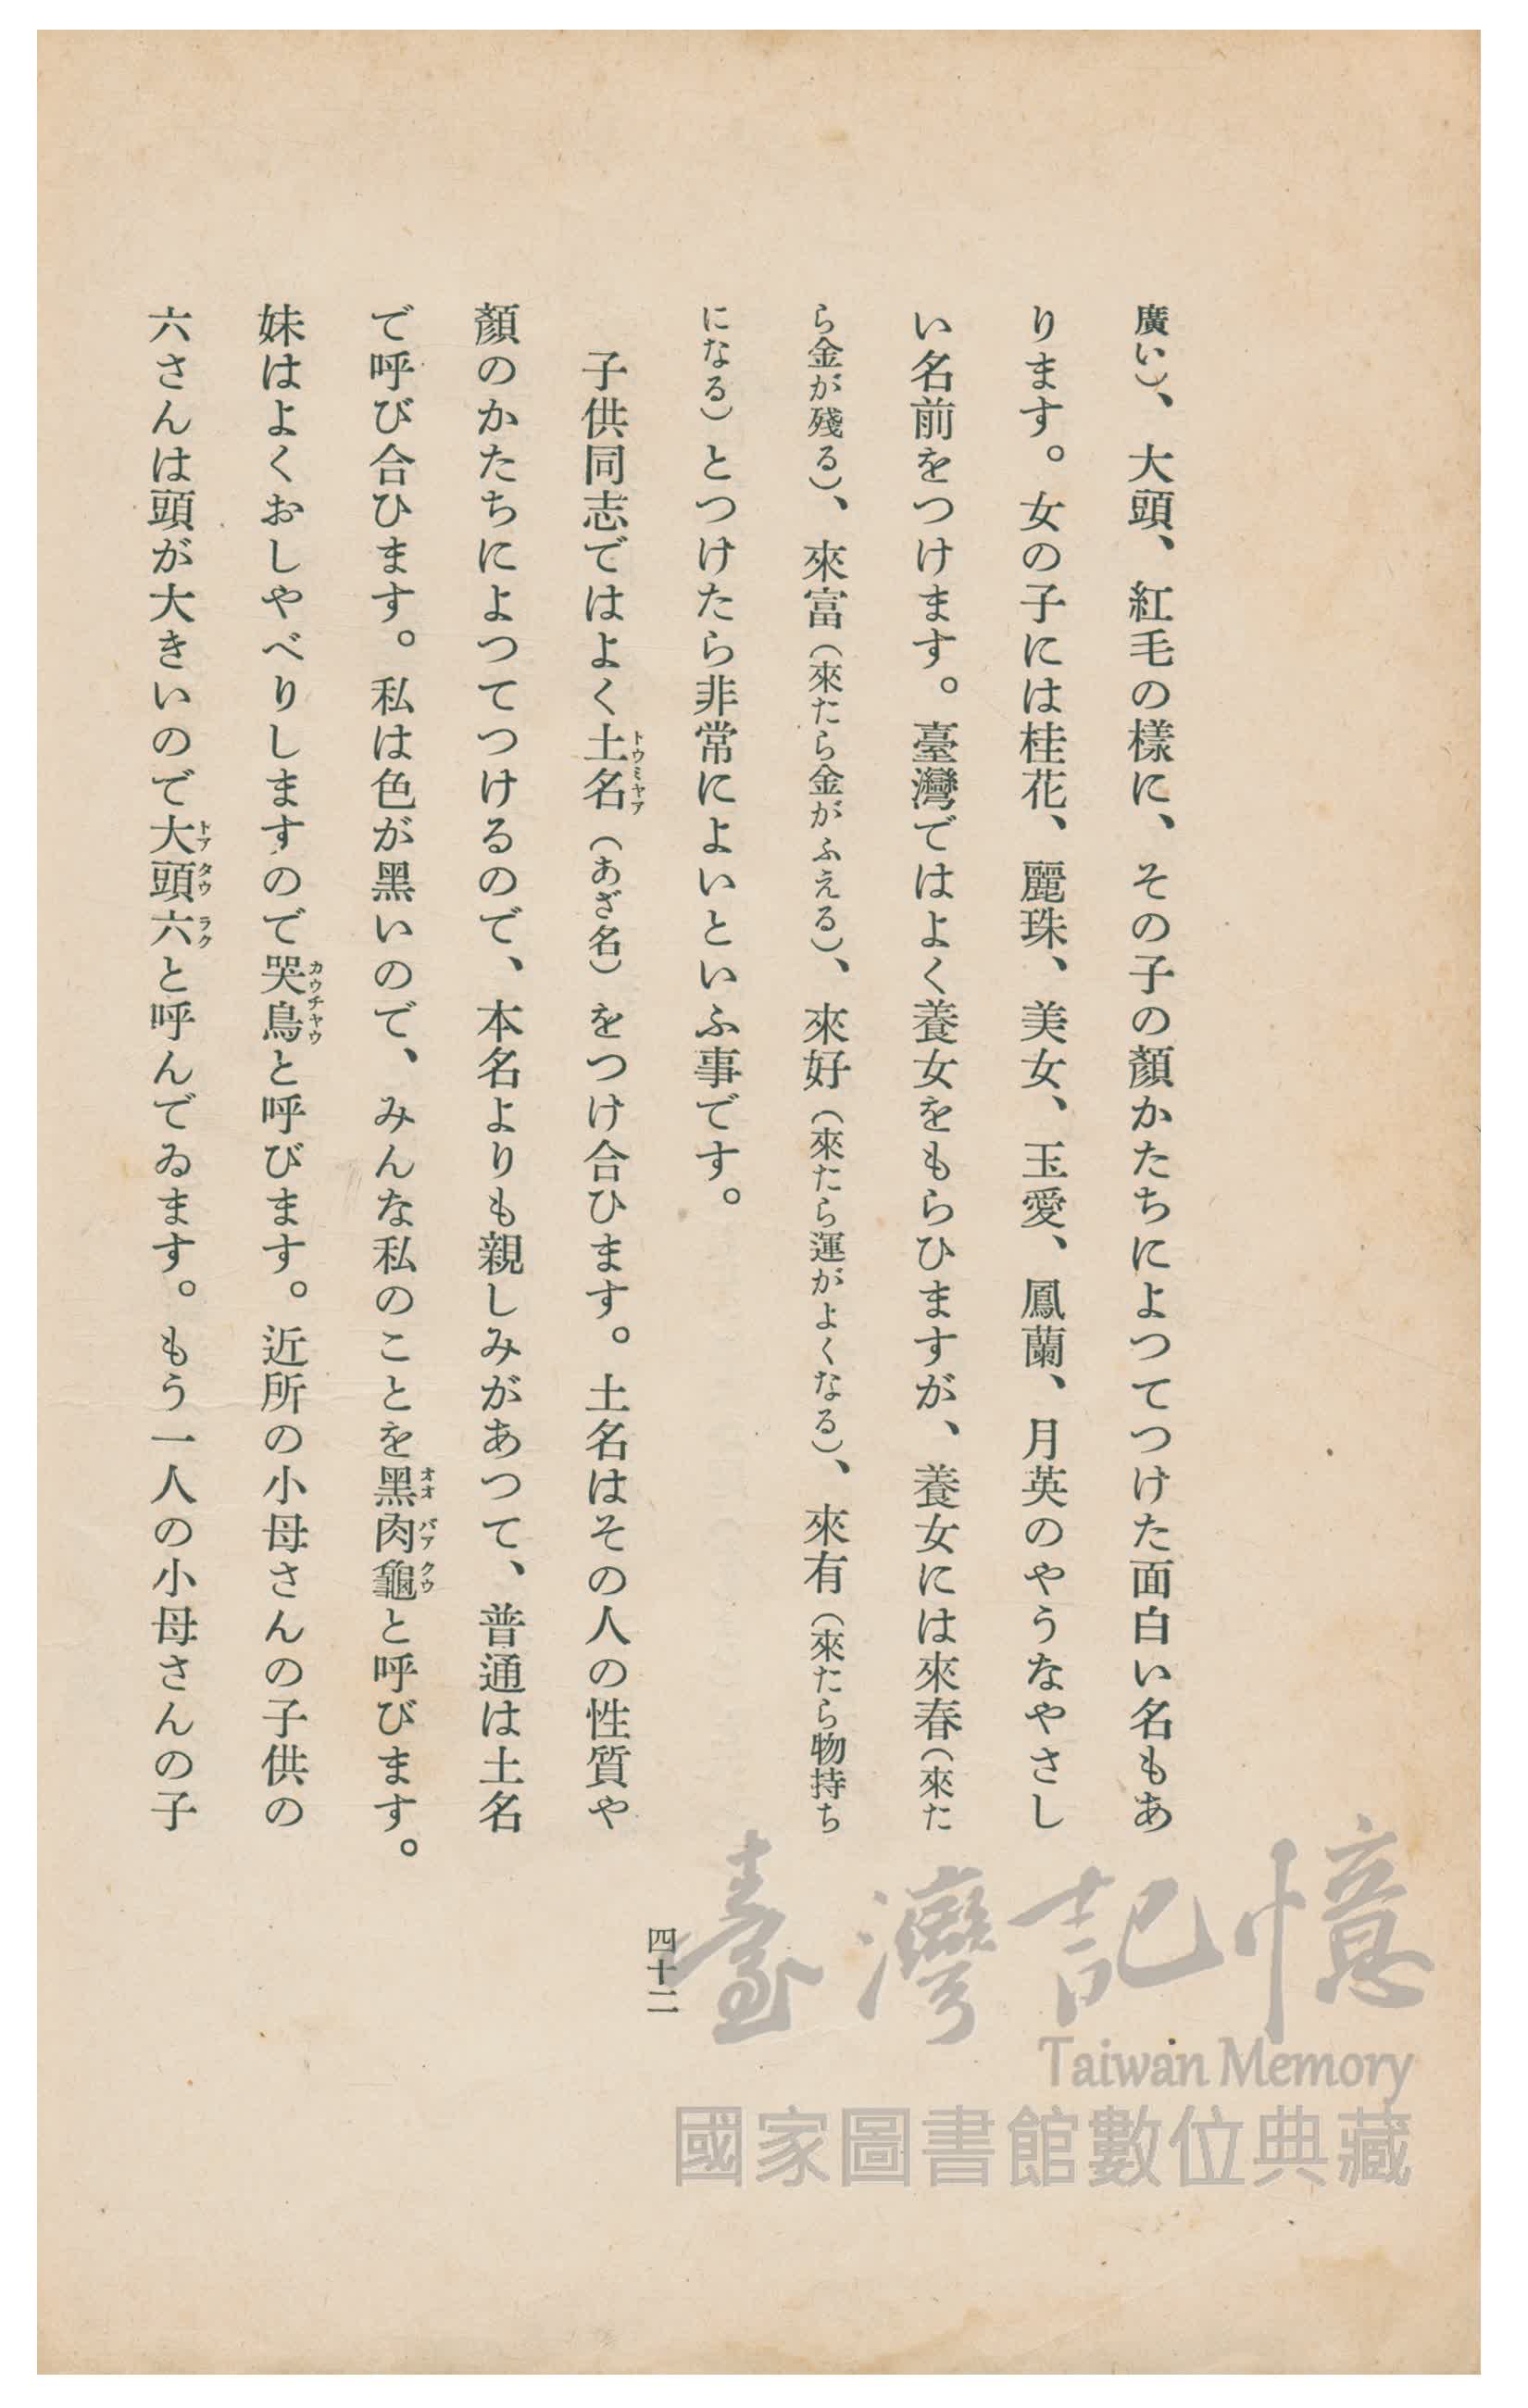 廣い）、大頭、紅毛の樣に、その子の顏かたちによつてつけた面白い名もあ
ります。女の子には桂花、麗珠、美女、玉愛、鳳蘭、月英のやうなやさし
い名前をつけます。臺灣ではよく養女をもらひますが、養女には來春（來た
ら金が殘る）、來富（來たら金がふえる）、來好（來たら運がよくなる）、來有（來たら物持ち
になる）とつけたら非常によいといふ事です。
子供同志ではよく土名トウミヤア（あざ名）をつけ合ひます。土名はその人の性質や
顏のかたちによつてつけるので、本名よりも親しみがあつて、普通は土名
で呼び合ひます。私は色が黑いので、みんな私のことを黑肉龜オオバアクウと呼びます。
妹はよくおしやべりしますので哭鳥カウチヤウと呼びます。近所の小母さんの子供の
六さんは頭が大きいので大頭六トアタウラクと呼んでゐます。もう一人の小母さんの子
四十二
臺灣記憶
Taiwan Memory
國家圖書館數位典藏